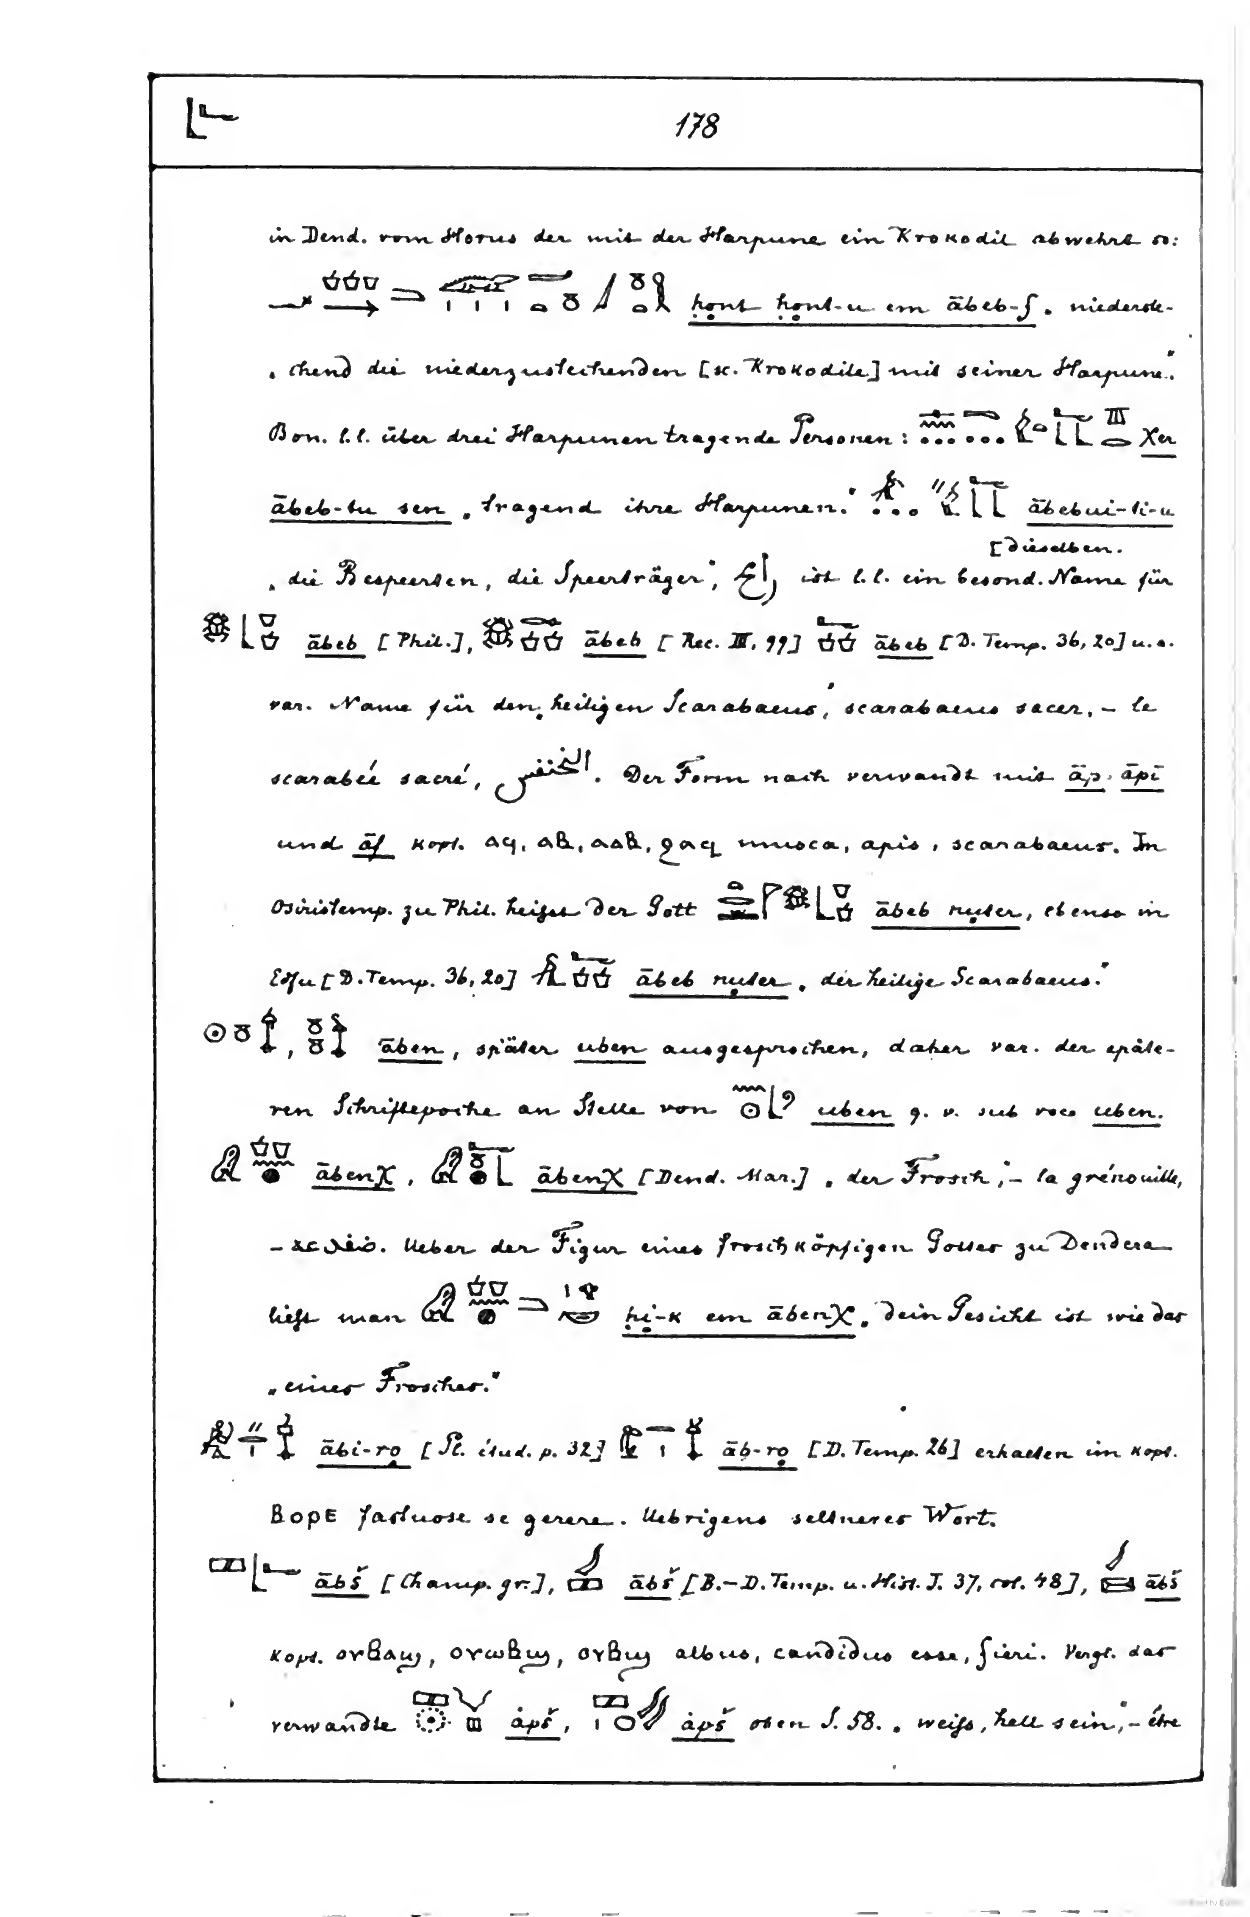 178
in Dend. vom Horus der mit der Harpune ein Krokodil abwehrt so:
ḥont ḥont-u em ābeb-f „ niederste-
„ chend die niederzustechenden [sc. Krokodile] mit seiner Harpune."
Bon. l.l. über drei Harpunen tragende Personen: χer
ābeb-tu sen „ tragend ihre Harpunen." ābebui-ti-u
[dieselben.
„ die Bespeerten, die Speerträger", ist l.l. ein besond. Name für
ābeb [Phil.], ābeb [Rec. III, 99] ābeb [D. Temp. 36, 20] u.a.
var. Name für den „heiligen Scarabaeus", scarabaeus sacer, – le
scarabée sacré, الخنفس. Der Form nach verwandt mit āp, āpi
und āf kopt. ⲁϥ, ⲁⲃ, ⲁⲁⲃ, ϩⲁϥ musca, apis, scarabaeus. Im
Osiristemp. zu Phil. heißt der Gott ābeb nuter, ebenso in
Edfu [D. Temp. 36, 20] ābeb nuter „ der heilige Scarabaeus."
āben, später uben ausgesprochen, daher var. der späte-
ren Schriftepoche an Stelle von uben q. v. sub voce uben.
ābenχ, ābenχ [Dend. Mar.] „ der Frosch", – la grénouille,
– Ueber der Figur eines froschköpfigen Gottes zu Dendera
ließt man ḥi-k em ābenχ „ dein Gesicht ist wie das
„ eines Frosches."
ābi-ro [Pl. étud. p. 32] āb-ro [D. Temp. 26] erhalten im kopt.
ⲃⲟⲣⲉ fastuose se gerere. Uebrigens seltneres Wort.
ābš [Champ. gr.], ābš [B.–D. Temp. u. Hist. I. 37, col. 48], ābš
kopt. ⲟⲩⲃⲁϣ, ⲟⲩⲱⲃϣ, ⲟⲩⲃϣ albus, candidus esse, fieri. Vergl. das
verwandte ȧpš, ȧpš oben S. 58. „ weiß, hell sein", – être